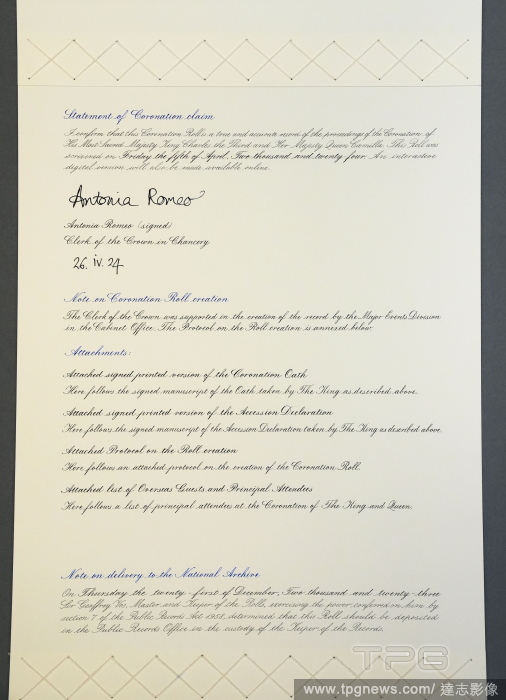 Statement of Coronation claim
I confirm that this Coronation Roll is a true and accurate record of the proceedings of the Coronation of
His Most Sacred Majesty King Charles the Third and Her Majesty Queen Camilla. This Roll was
scrivened on Friday the fifth of April, Two thousand and twenty four. An interactive
digital version will also be made available online.
Antonia Romeo
Antonia Romeo (signed)
Clerk of the Crown in Chancery
26. iv. 24
Note on Coronation Roll creation
The Clerk of the Crown was supported in the creation of the record by the Major Events Division
in the Cabinet Office. The Protocol on the Roll creation is annexed below
Attachments:
Attached signed printed version of the Coronation Oath
Here follows the signed manuscript of the Oath taken by The King as described above.
Attached signed printed version of the Accession Declaration
Here follows the signed manuscript of the Accession Declaration taken by The King as described above.
Attached Protocol on the Roll creation
Here follows an attached protocol on the creation of the Coronation Roll.
Attached list of Overseas Guests and Principal Attendees
Here follows a list of principal attendees at the Coronation of The King and Queen.
Note on delivery to the National Archive
On Thursday the twenty-first of December, Two thousand and twenty-three
Sir Geoffrey Vos, Master and Keeper of the Rolls, exercising the power conferred on him by
section 7 of the Public Records Act 1958, determined that this Roll should be deposited
in the Public Records Office in the custody of the Keeper of the Records.
TPG
www.tpgnews.com/達志影像